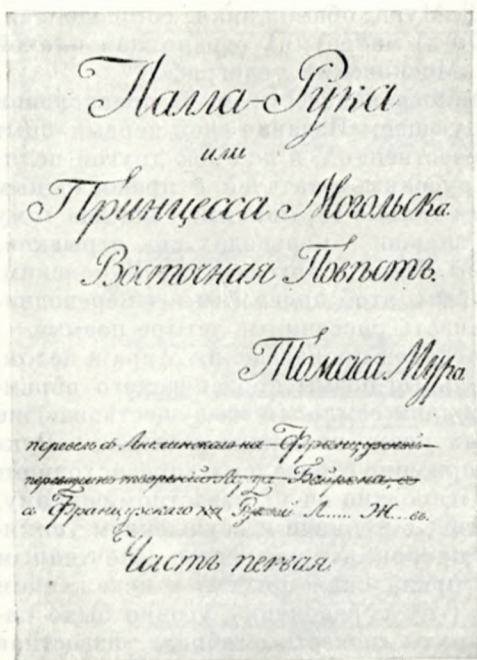 Лалла-Рука
или
Принцесса Могольска.
Восточная Повѣсть.
Томаса Мура
перевелъ съ Англинскаго на Французской
переводчикъ твореній Лорда Байрона, съ
съ Французскаго на Рускій Л..... Ж...въ.
Часть первая.